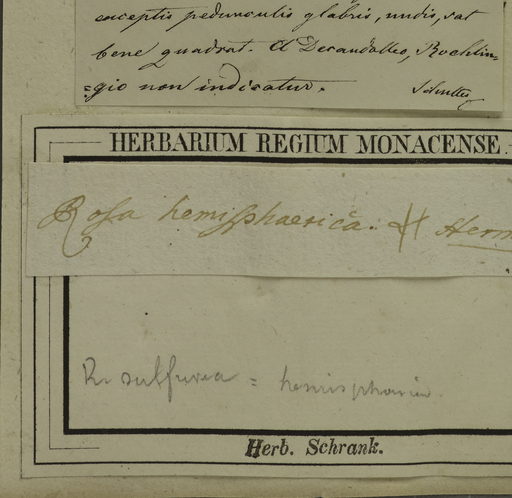 exceptis pedunculis glabris, nudis, sat
bene quadrat. A Decandolleo, Roehlin=
=gio non indicatur. Schultes
HERBARIUM REGIUM MONACENSE.
Rosa hemisphaerica. H Herm
R. sulfurea = hemisphaerica.
Herb. Schrank.